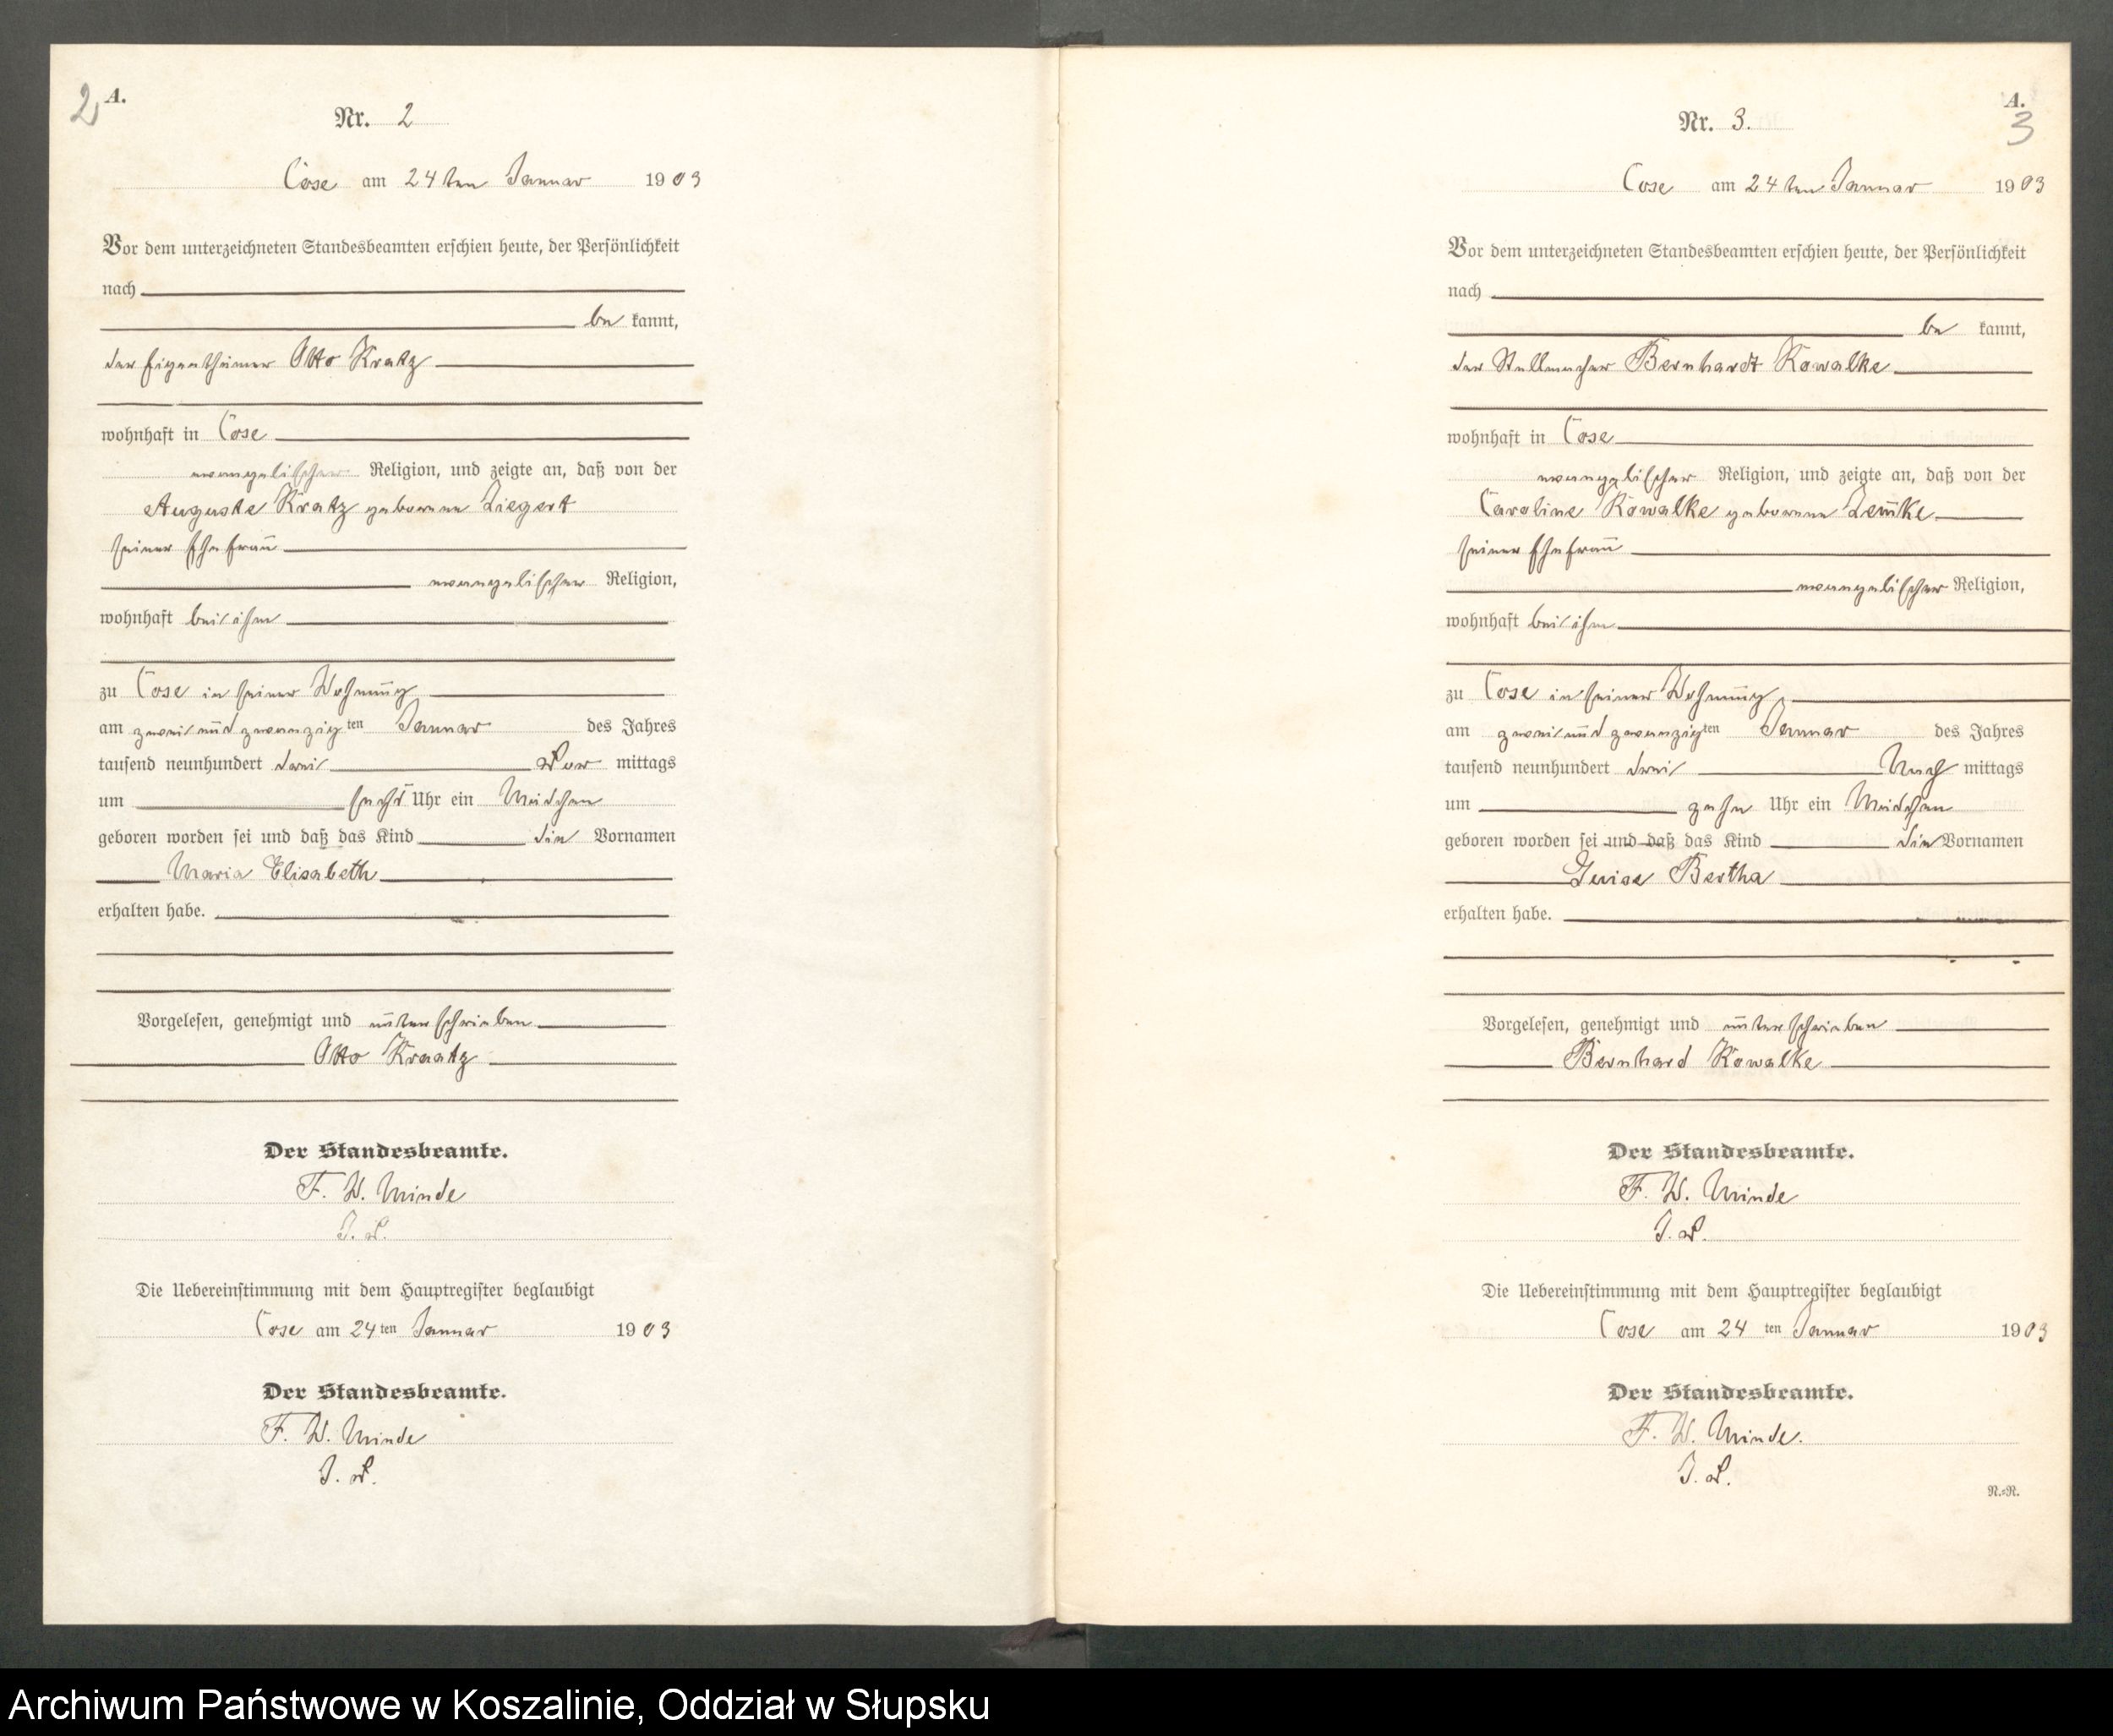 2
A.
Nr. 2
Cose am 24ten Januar 1903
Vor dem unterzeichneten Standesbeamten erschien heute, der Persönlichkeit
nach
be kannt,
der Eigenthümer Otto Kratz
wohnhaft in Cose
evangelischer Religion, und zeigte an, daß von der
Auguste Kratz geborene Ziegert
seiner Ehefrau
evangelischer Religion,
wohnhaft bei ihm
zu Cose in seiner Wohnung
am zwei und zwanzigten Januar des Jahres
tausend neunhundert drei Vor mittags
um sechs Uhr ein Mädchen
geboren worden sei und daß das Kind die Vornamen
Maria Elisabeth
erhalten habe.
Vorgelesen, genehmigt und unterschrieben
Otto Kraatz
Der Standesbeamte.
F. W. Minde
J. V.
Die Uebereinstimmung mit dem Hauptregister beglaubigt
Cose am 24ten Januar 1903
Der Standesbeamte.
F. W. Minde
J. V.
A.
3
Nr. 3.
Cose am 24ten Januar 1903
Vor dem unterzeichneten Standesbeamten erschien heute, der Persönlichkeit
nach
be kannt,
der Stellmacher Bernhardt Kowalke
wohnhaft in Cose
evangelischer Religion, und zeigte an, daß von der
Caroline Kowalke geborene Lemke
seiner Ehefrau
evangelischer Religion,
wohnhaft bei ihm
zu Cose in seiner Wohnung
am zwei und zwanzigten Januar des Jahres
tausend neunhundert drei Nach mittags
um zehn Uhr ein Mädchen
geboren worden sei und daß das Kind die Vornamen
Luise Bertha
erhalten habe.
Vorgelesen, genehmigt und unterschrieben
Bernhard Kowalke
Der Standesbeamte.
F. W. Minde
J. V.
Die Uebereinstimmung mit dem Hauptregister beglaubigt
Cose am 24 ten Januar 1903
Der Standesbeamte.
F. W. Minde.
J. V.
N.=N.
Archiwum Państwowe w Koszalinie, Oddział w Słupsku